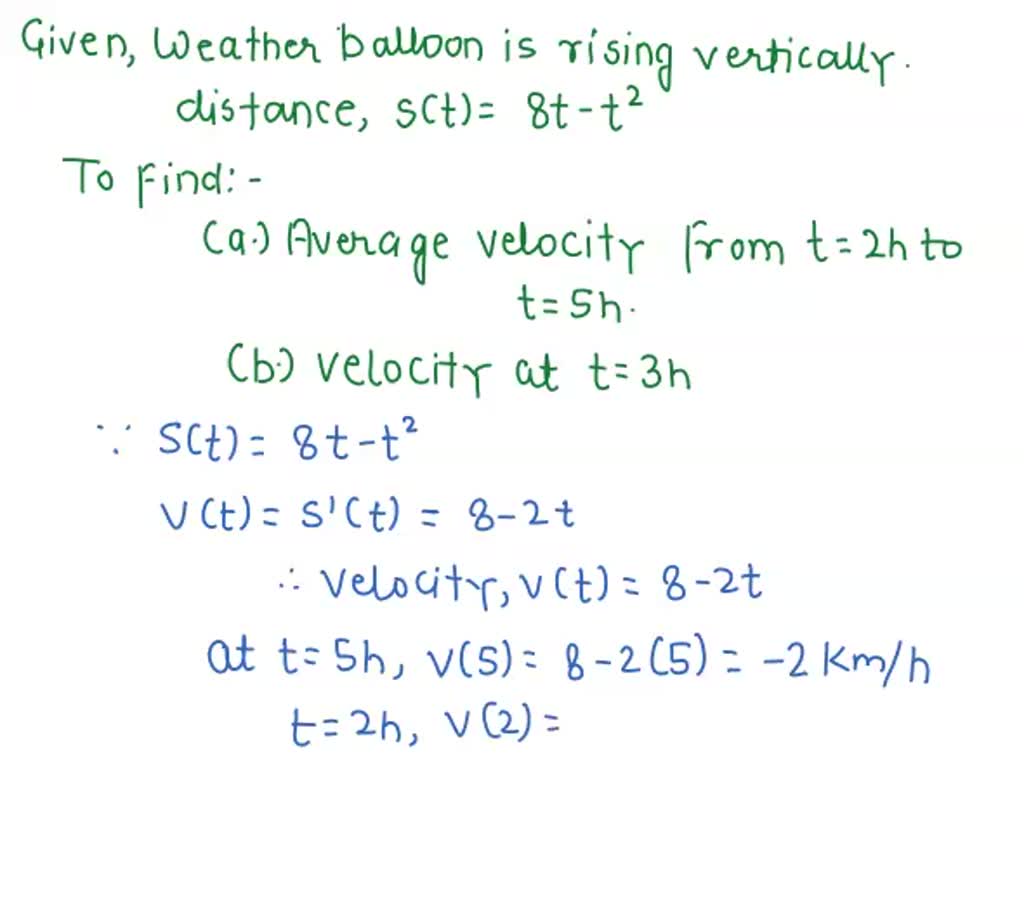 Given, Weather balloon is rising vertically.
distance, s(t) = 8t - t²
To Find: -
(a.) Average velocity from t = 2h to
t = 5h.
(b.) velocity at t = 3h
∵ S(t) = 8t - t²
V(t) = S'(t) = 8 - 2t
∴ velocity, v(t) = 8 - 2t
at t = 5h, v(5) = 8 - 2(5) = -2 Km/h
t = 2h, v(2) =